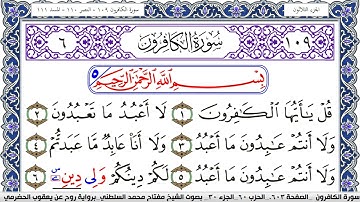 الجزء الثلاثون
سورة الكافرون ١٠٩ - النصر ١١٠ - المسد ١١١
١٠٩ سُورَةُ الكَافِرُونَ ٦
بِسْمِ اللَّهِ الرَّحْمَٰنِ الرَّحِيمِ
قُلْ يَٰٓأَيُّهَا ٱلْكَٰفِرُونَ ١ لَآ أَعْبُدُ مَا تَعْبُدُونَ ٢
وَلَآ أَنتُمْ عَٰبِدُونَ مَآ أَعْبُدُ ٣ وَلَآ أَنَا۠ عَابِدٌ مَّا عَبَدتُّمْ ٤
وَلَآ أَنتُمْ عَٰبِدُونَ مَآ أَعْبُدُ ٥ لَكُمْ دِينُكُمْ وَلِي دِينِ ٦
سورة الكافرون . الصفحة ٦٠٣ . الحزب ٦٠ . الجزء ٣٠ . بصوت الشيخ مفتاح محمد السلطني . برواية روح عن يعقوب الحضرمي